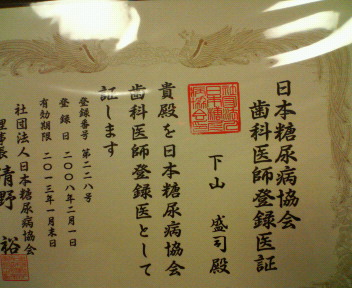 日本糖尿病協会
歯科医師登録医証
下山 盛司殿
貴殿を日本糖尿病協会
歯科医師登録医として
証します
登録番号 第二二八号
登録日 二〇〇八年二月一日
有効期限 二〇一三年一月末日
社団法人日本糖尿病協会
理事長 清野 裕